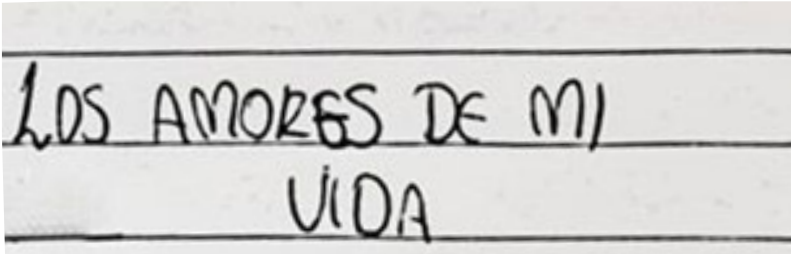 LOS AMORES DE MI
VIDA